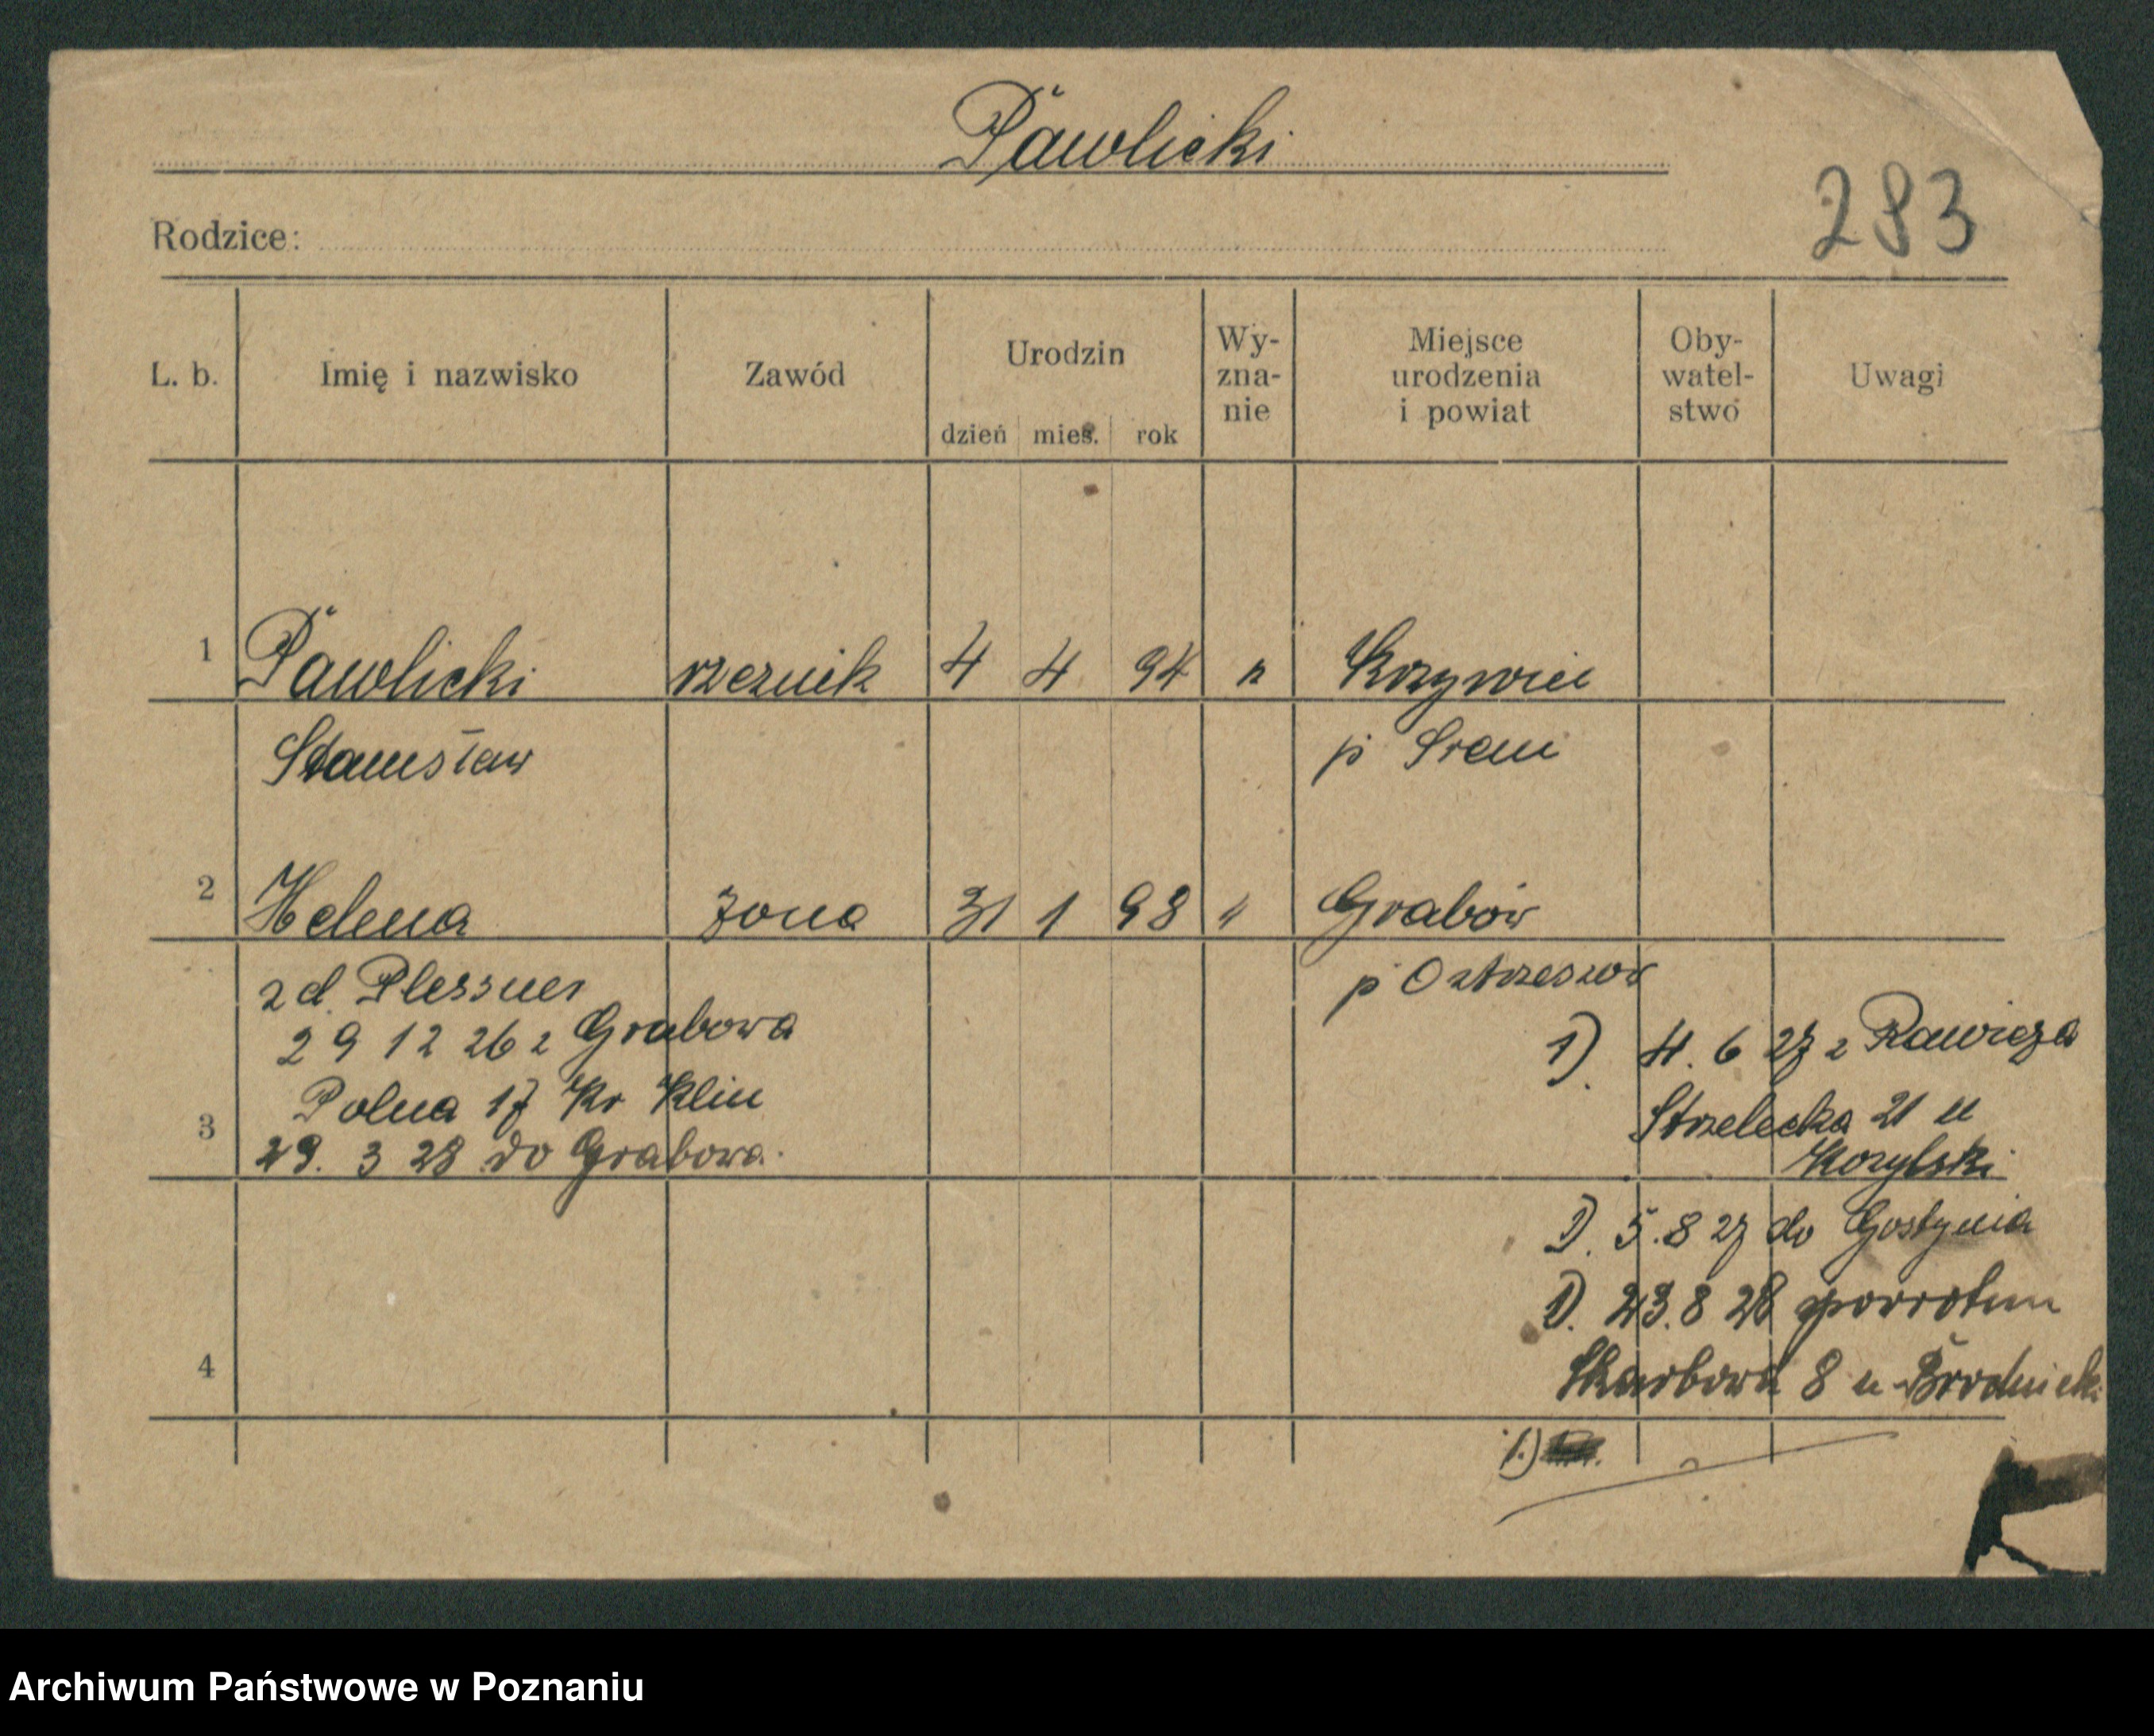 Pawlicki
283
Rodzice:
L. b.
Imię i nazwisko
Zawód
Urodzin
dzień mies. rok
Wy-
zna-
nie
Miejsce
urodzenia
i powiat
Oby-
watel-
stwo
Uwagi
1 Pawlicki rzeznik 4 4 94 Krzywiń
Stanisław p Srem
2 Helena żona 31 1 98 " Grabów
zd. Plessner p Ostrzeszów
29 12 26 z Grabowa
Polna 17 Kr Klin
3
29. 3 28 do Grabowa.
1). 4. 6 27 z Rawicza
Strzelecka 21 u
1). 5. 8 27 do Gostynia
1). 23. 8 28 powrotem
Skarbowa 8 u
4
1.)
Archiwum Państwowe w Poznaniu